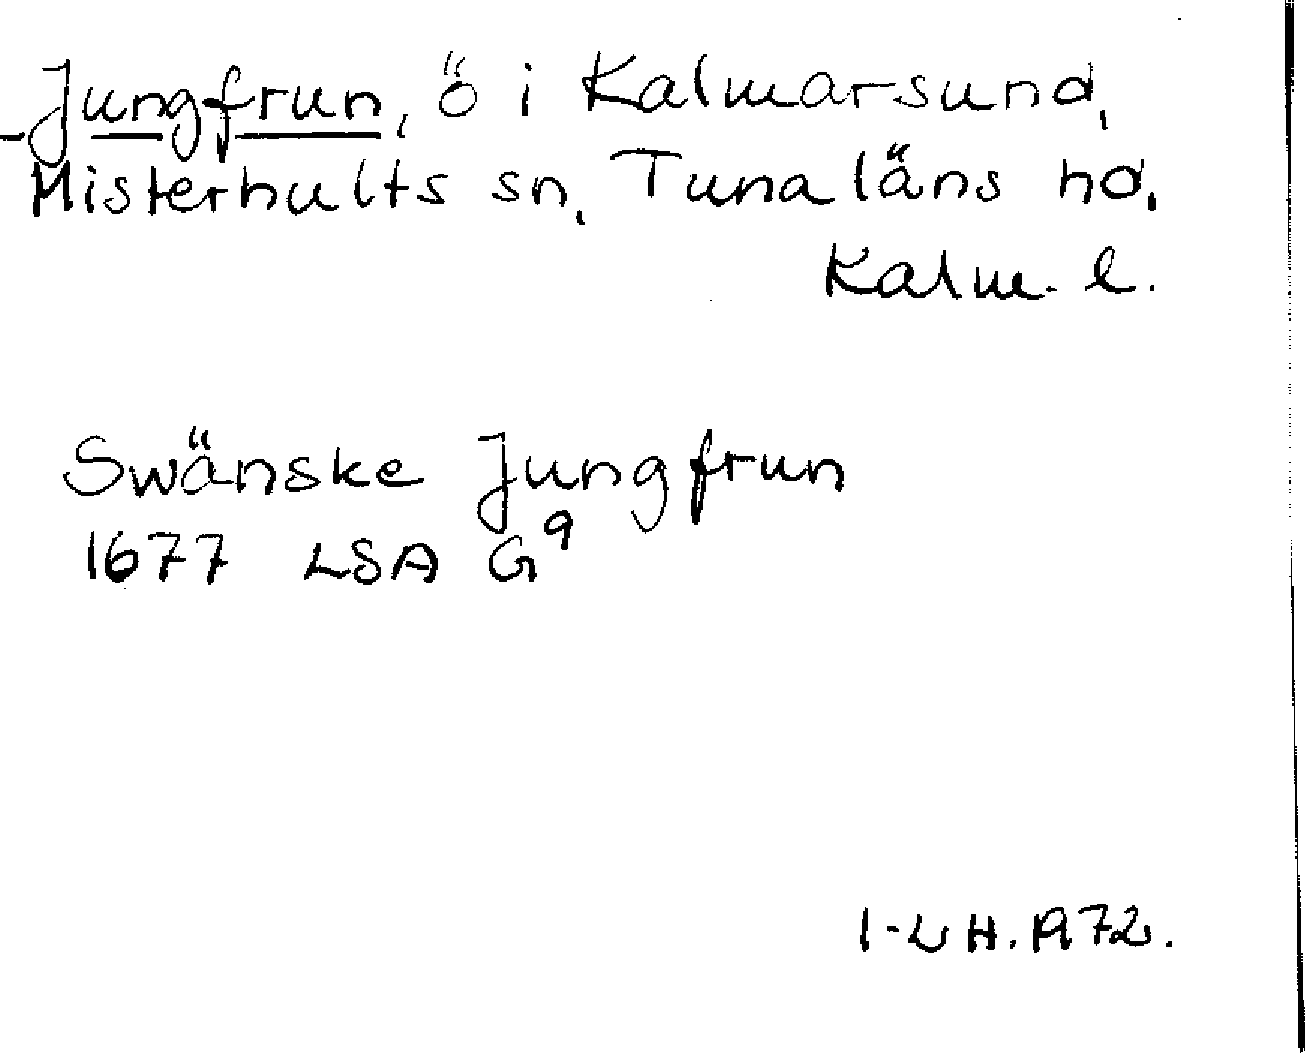 Jungfrun, ö i Kalmarsund,
Misterhults sn, Tunaläns hd.
Kalm. l.
Swänske Jungfrun
1677 LSA G⁹
I-L H. 1972.